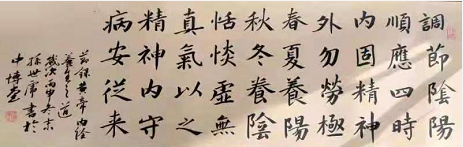 調節陰陽
順應四時
內固精神
外勿勞極
春夏養陽
秋冬養陰
恬惔虛無
真氣以之
精神內守
病安從来
節錄黃帝內經
養生之道
歲次丙申冬末
孫世 書於
中博堂